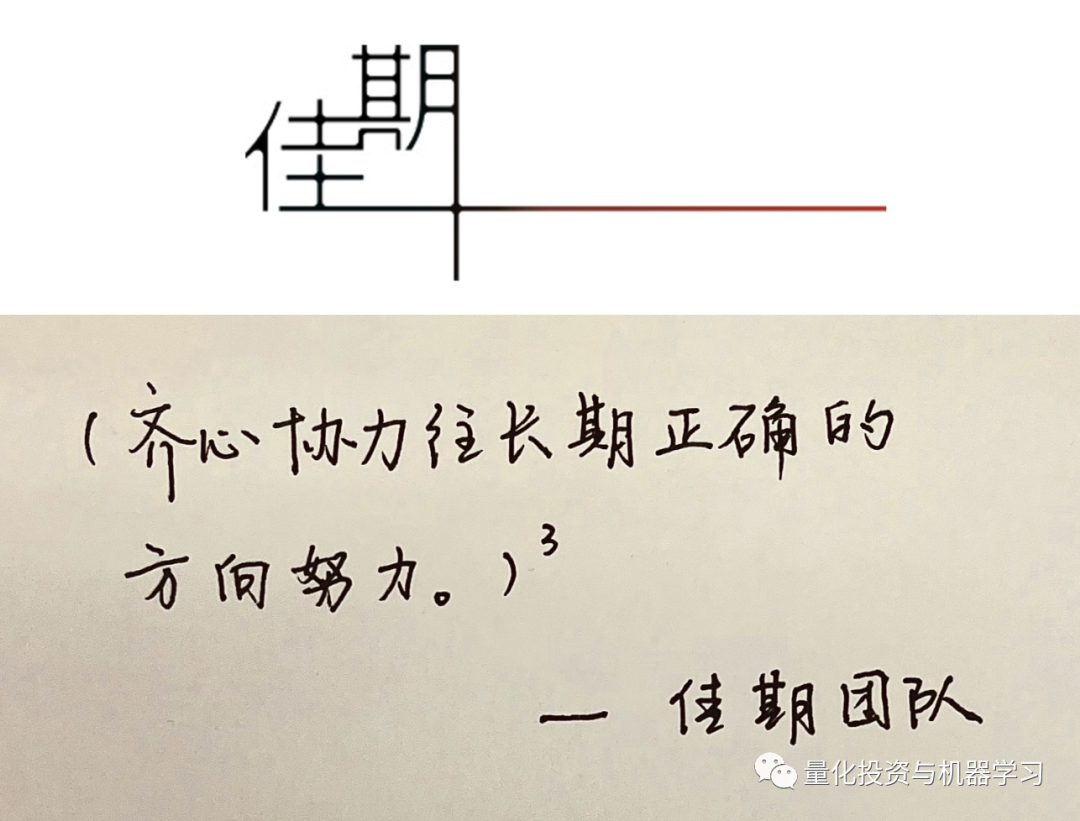 佳期
(齐心协力往长期正确的
方向努力。)³
— 佳期团队
量化投资与机器学习